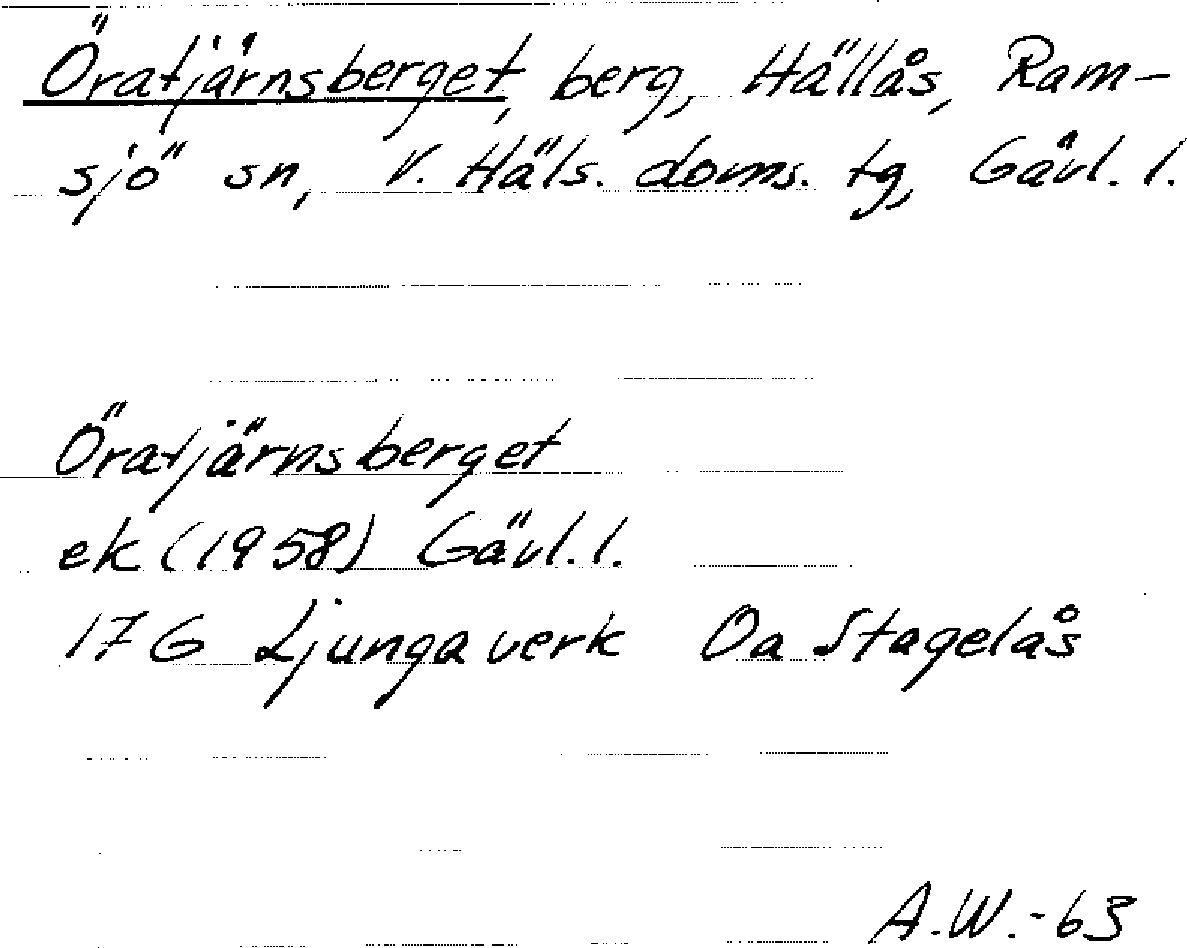 Öratjärnsberget, berg, Hällås, Ram-
sjö sn, V. Häls. doms. tg, Gävl. l.
Öratjärnsberget
ek (1958) Gävl. l.
17G Ljungaverk 0a Stagelås
A.W.-63